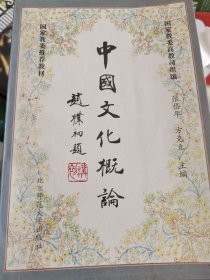 国家教委高教司组编
国家教委推荐教材
张岱年 方克立 主编
中國文化概論
趙樸初題
北京师范大学出版社